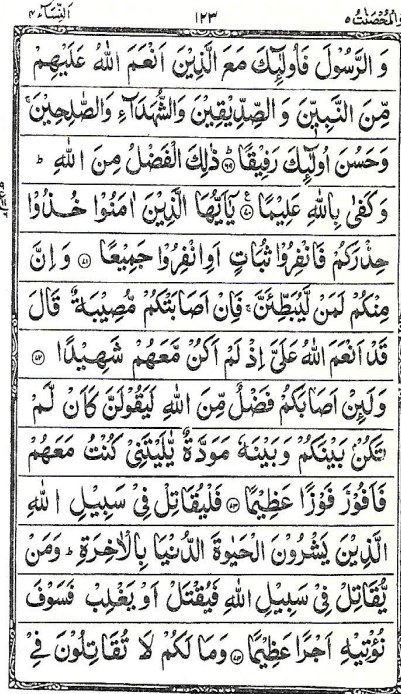 وَالْمُحْصَنٰتُ ٥ ١٢٣ اَلنِّسَآء ٤
وَ الرَّسُوْلَ فَاُولٰٓئِكَ مَعَ الَّذِيْنَ اَنْعَمَ اللّٰهُ عَلَيْهِمْ
مِّنَ النَّبِيّٖنَ وَ الصِّدِّيْقِيْنَ وَالشُّهَدَآءِ وَالصّٰلِحِيْنَ ۚ
وَحَسُنَ اُولٰٓئِكَ رَفِيْقًا ۝٦٩ ذٰلِكَ الْفَضْلُ مِنَ اللّٰهِ ؕ
وَكَفٰى بِاللّٰهِ عَلِيْمًا ۝٧٠ ع يٰۤاَيُّهَا الَّذِيْنَ اٰمَنُوْا خُذُوْا
حِذْرَكُمْ فَانْفِرُوْا ثُبَاتٍ اَوِانْفِرُوْا جَمِيْعًا ۝٧١ وَ اِنَّ
مِنْكُمْ لَمَنْ لَّيُبَطِّئَنَّ ۚ فَاِنْ اَصَابَتْكُمْ مُّصِيْبَةٌ قَالَ
قَدْ اَنْعَمَ اللّٰهُ عَلَيَّ اِذْ لَمْ اَكُنْ مَّعَهُمْ شَهِيْدًا ۝٧٢
وَلَئِنْ اَصَابَكُمْ فَضْلٌ مِّنَ اللّٰهِ لَيَقُوْلَنَّ كَاَنْ لَّمْ
تَكُنْۢ بَيْنَكُمْ وَبَيْنَهٗ مَوَدَّةٌ يّٰلَيْتَنِيْ كُنْتُ مَعَهُمْ
فَاَفُوْزَ فَوْزًا عَظِيْمًا ۝٧٣ فَلْيُقَاتِلْ فِيْ سَبِيْلِ اللّٰهِ
الَّذِيْنَ يَشْرُوْنَ الْحَيٰوةَ الدُّنْيَا بِالْاٰخِرَةِ ؕ وَمَنْ
يُّقَاتِلْ فِيْ سَبِيْلِ اللّٰهِ فَيُقْتَلْ اَوْ يَغْلِبْ فَسَوْفَ
نُؤْتِيْهِ اَجْرًا عَظِيْمًا ۝٧٤ وَمَا لَكُمْ لَا تُقَاتِلُوْنَ فِيْ